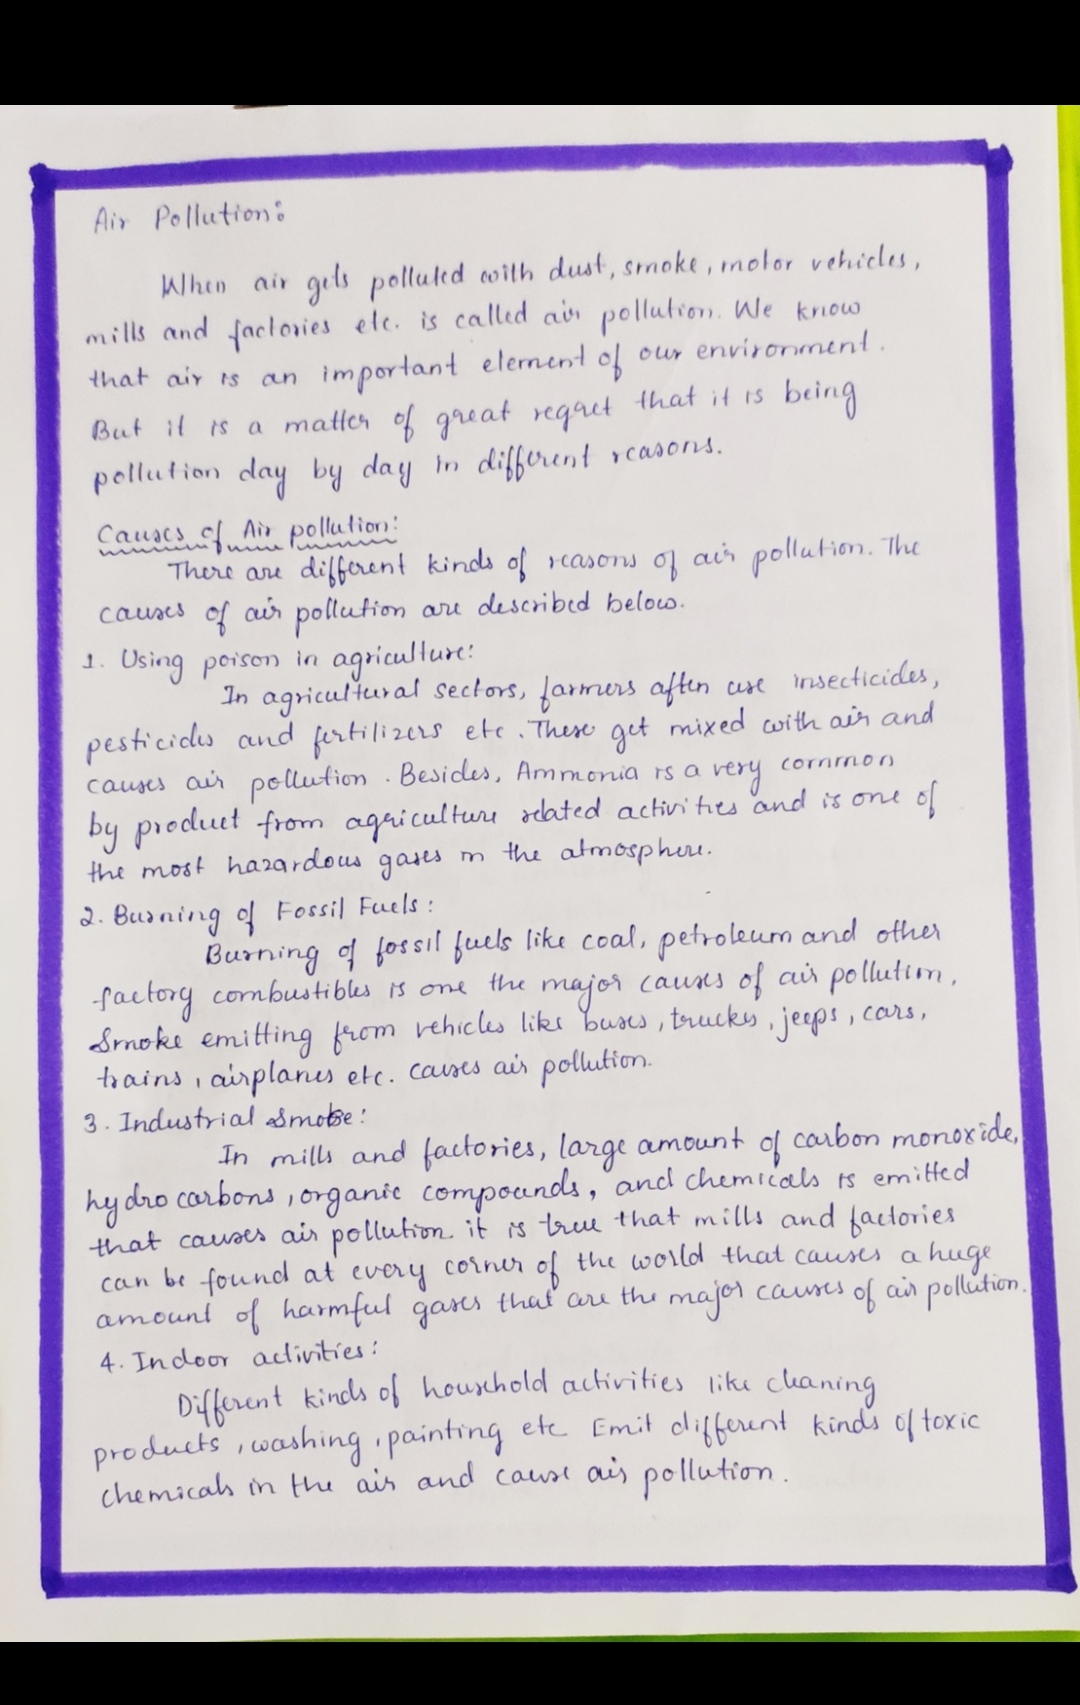 Air Pollution:
When air gets polluted with dust, smoke, motor vehicles,
mills and factories etc. is called air pollution. We know
that air is an important element of our environment.
But it is a matter of great regret that it is being
pollution day by day in different reasons.
Causes of Air pollution:
There are different kinds of reasons of air pollution. The
causes of air pollution are described below.
1. Using poison in agriculture:
In agricultural sectors, farmers often use insecticides,
pesticides and fertilizers etc. These get mixed with air and
causes air pollution. Besides, Ammonia is a very common
by product from agriculture related activities and is one of
the most hazardous gases in the atmosphere.
2. Burning of Fossil Fuels:
Burning of fossil fuels like coal, petroleum and other
factory combustibles is one the major causes of air pollution,
Smoke emitting from vehicles like buses, trucks, jeeps, cars,
trains, airplanes etc. causes air pollution.
3. Industrial Smoke:
In mills and factories, large amount of carbon monoxide,
hydro carbons, organic compounds, and chemicals is emitted
that causes air pollution. it is true that mills and factories
can be found at every corner of the world that causes a huge
amount of harmful gases that are the major causes of air pollution.
4. Indoor activities:
Different kinds of household activities like cleaning
products, washing, painting etc Emit different kinds of toxic
chemicals in the air and cause air pollution.